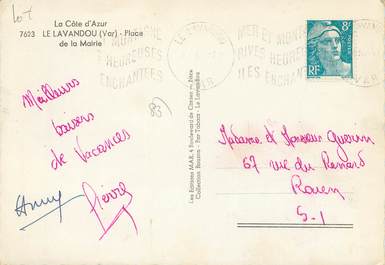 lot
La Côte d'Azur
7623 LE LAVANDOU (Var) - Place
de la Mairie
LE LAVANDOU
VAR
MER ET MONT
RIVES HEUREUSES
ILES ENCHANTEES
8F
RF
Meilleurs
baisers
de Vacances
Anny
Pierre
83
Les Editions MAR, 4 Boulevard de Cimiez - Nice
Collection Bessins - Bar Tabacs - Le Lavandou
Madame et Monsieur Guerin
67 rue du Renard
Rouen
S-I